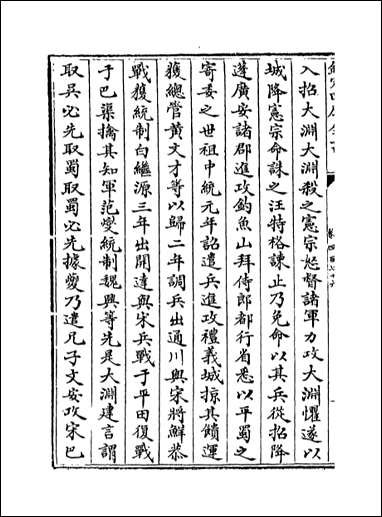 入招大淵大淵殺之憲宗怒督諸軍力攻大淵懼遂以
城降憲宗命誅之汪特格諫止乃免命以其兵從招降
蓬廣安諸郡進攻釣魚山拜侍郎都行省悉以平蜀之
寄委之世祖中統元年詔遣兵進攻禮義城掠其饋運
獲總管黃文才等以歸二年調兵出通川與宋將鮮恭
戰獲統制白繼源三年出開達與宋兵戰于平田復戰
于巴渠擒其知軍范燮統制魏興等先是大淵建言謂
取吳必先取蜀取蜀必先據夔乃遣兄子文安攻宋巴